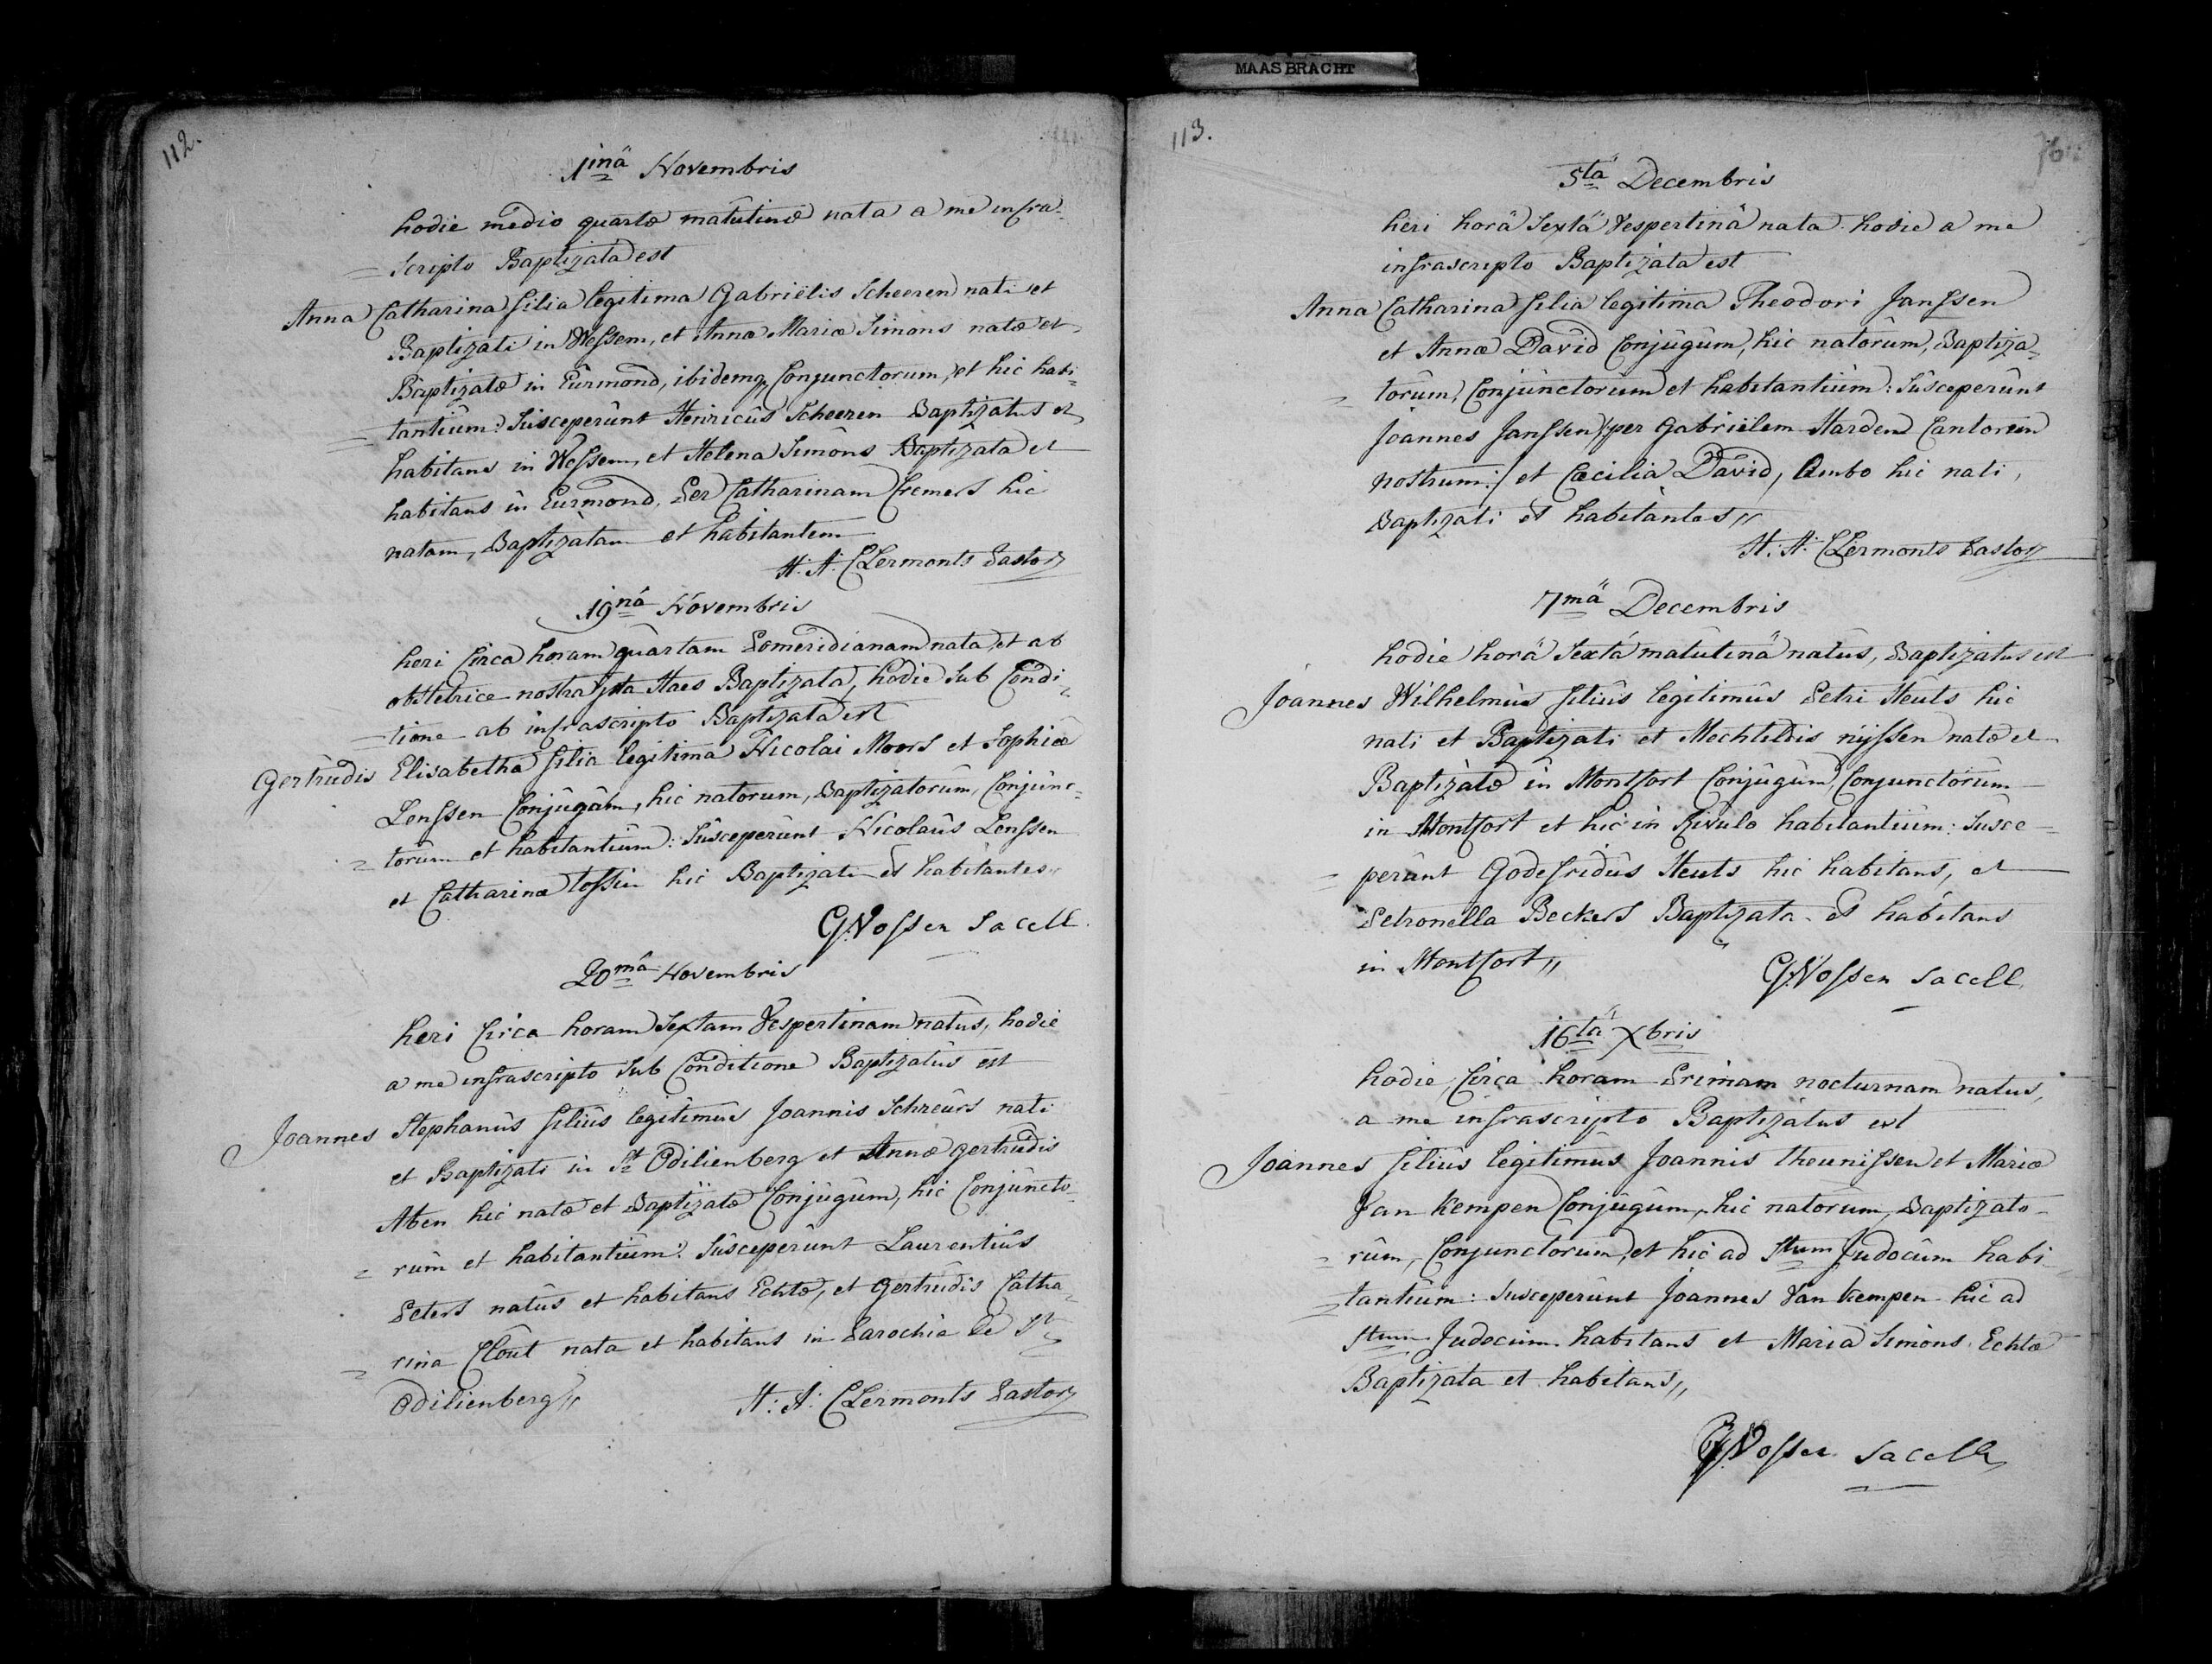 MAASBRACHT
112.
1inâ Novembris
hodie medio quartæ matutinæ nata a me infra=
=scripto Baptizata est
Anna Catharina filia legitima Gabriëlis Scheeren nati et
Baptizati in Wessem, et Annæ Mariæ Simons natæ et
Baptizatæ in Eurmond, ibidemq Conjunctorum, et hic habi=
=tantium: Susceperunt Henricus Scheeren Baptizatus et
habitans in Wessem, et Helena Simons Baptizata et
habitans in Eurmond, Per Catharinam Cremers hic
natam, Baptizatam et habitantem
H: A: CLermonts Pastor
19nâ Novembris
heri Circa horam quartam Pomeridianam nata, et ab
obstetrice nostra Haes Baptizata, hodie sub Condi=
=tione ab infrascripto Baptizata est
Gertrudis Elisabetha filia legitima Nicolai Moors et Sophiæ
Lenssen Conjugum, hic natorum, Baptizatorum, Conjunc=
=torum et habitantium: Susceperunt Nicolaus Lenssen
et Catharina Tossin hic Baptizati et habitantes„
G:Vossen Sacell.
20mâ Novembris
heri Circa horam Sextam Vespertinam natus, hodie
a me infrascripto sub Conditione Baptizatus est
Joannes Stephanus filius legitimus Joannis Schreurs nati
et Baptizati in St Odilienberg et Annæ gertrudis
Aben hic natæ et Baptizatæ Conjugum, hic Conjuncto=
=rum et habitantium: Susceperunt Laurentius
Peters natus et habitans Echtæ, et Gertrudis Catha=
=rina Clout nata et habitans in Parochia de St
Odilienberg„
H: A: CLermonts Pastor
113.
76
5tâ Decembris
heri horâ Sextâ Vespertinâ nata hodie a me
infrascripto Baptizata est
Anna Catharina filia legitima Theodori Janssen
et Annæ David Conjugum, hic natorum, Baptiza=
=torum, Conjunctorum et habitantium: Susceperunt
Joannes Janssen /:per Gabriëlem Harden Cantorem
nostrum:/ et Cæcilia David, Ambo hic nati,
Baptizati et habitantes„
H: A: CLermonts Pastor
7mâ Decembris
hodie horâ Sextâ matutinâ natus, Baptizatus est
Joannes Wilhelmus filius legitimus Petri Heuts hic
nati et Baptizati et Mechtildis nijssen natæ et
Baptizatæ in Montfort Conjugum, Conjunctorum
in Montfort et hic in Rivulo habitantium: Susce=
=perunt Godefridus Heuts hic habitans, et
Petronella Beckers Baptizata et habitans
in Montfort„
G:Vossen Sacell.
16tâ Xbris
hodie, Circa horam Primam nocturnam natus,
a me infrascripto Baptizatus est
Joannes filius legitimus Joannis Theunissen et Mariæ
Van Kempen Conjugum, hic natorum, Baptizato=
=rum, Conjunctorum, et hic ad Stum Judocum habi
=tantium: Susceperunt Joannes Van Kempen hic ad
Stum Judocum habitans et Maria Simons Echtæ
Baptizata et habitans„
G:Vossen Sacell